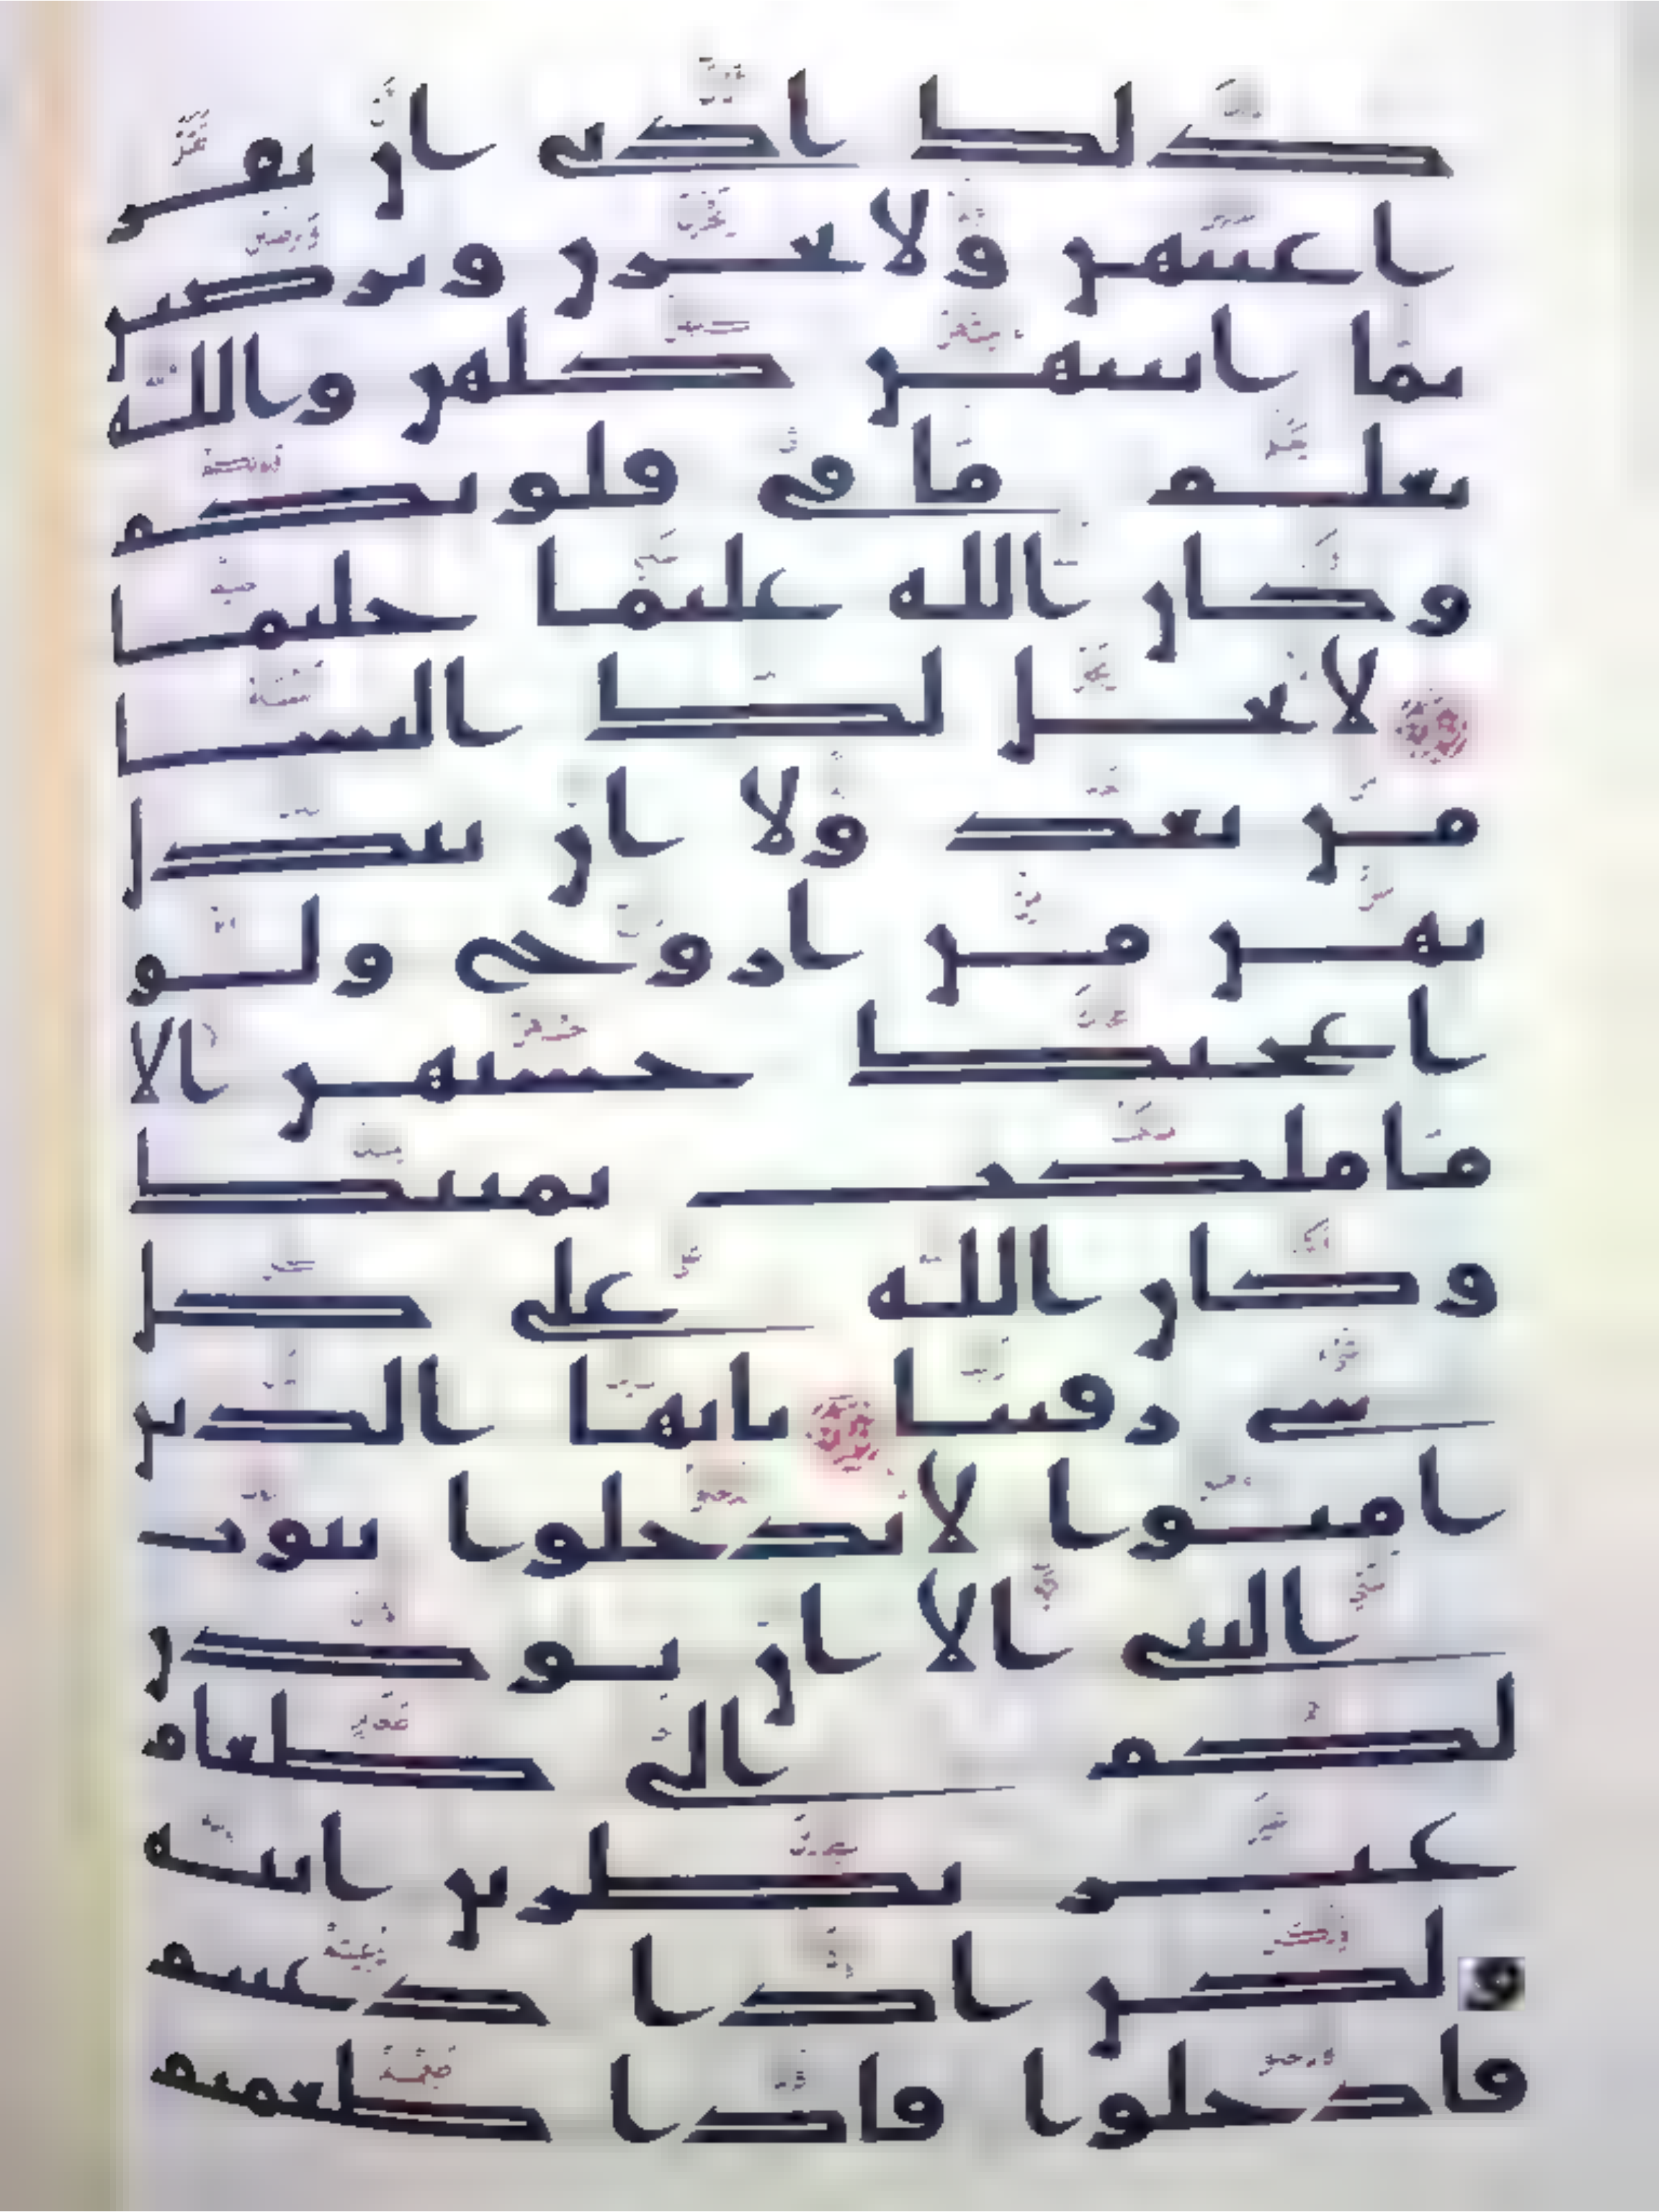 ذلك ادنى ان تقر
اعينهن ولا يحزن ويرضين
بما اتيتهن كلهن والله
يعلم ما في قلوبكم
وكان الله عليما حليما
لا يحل لك النسا
من بعد ولا ان تبدل
بهن من ازوج ولو
اعجبك حسنهن الا
ما ملكت يمينك
وكان الله على كل
شي رقيبا يايها الذين
امنوا لا تدخلوا بيوت
النبي الا ان يوذن
لكم الى طعام
غير نظرين انيه
ولكن اذا دعيتم
فادخلوا فاذا طعمتم